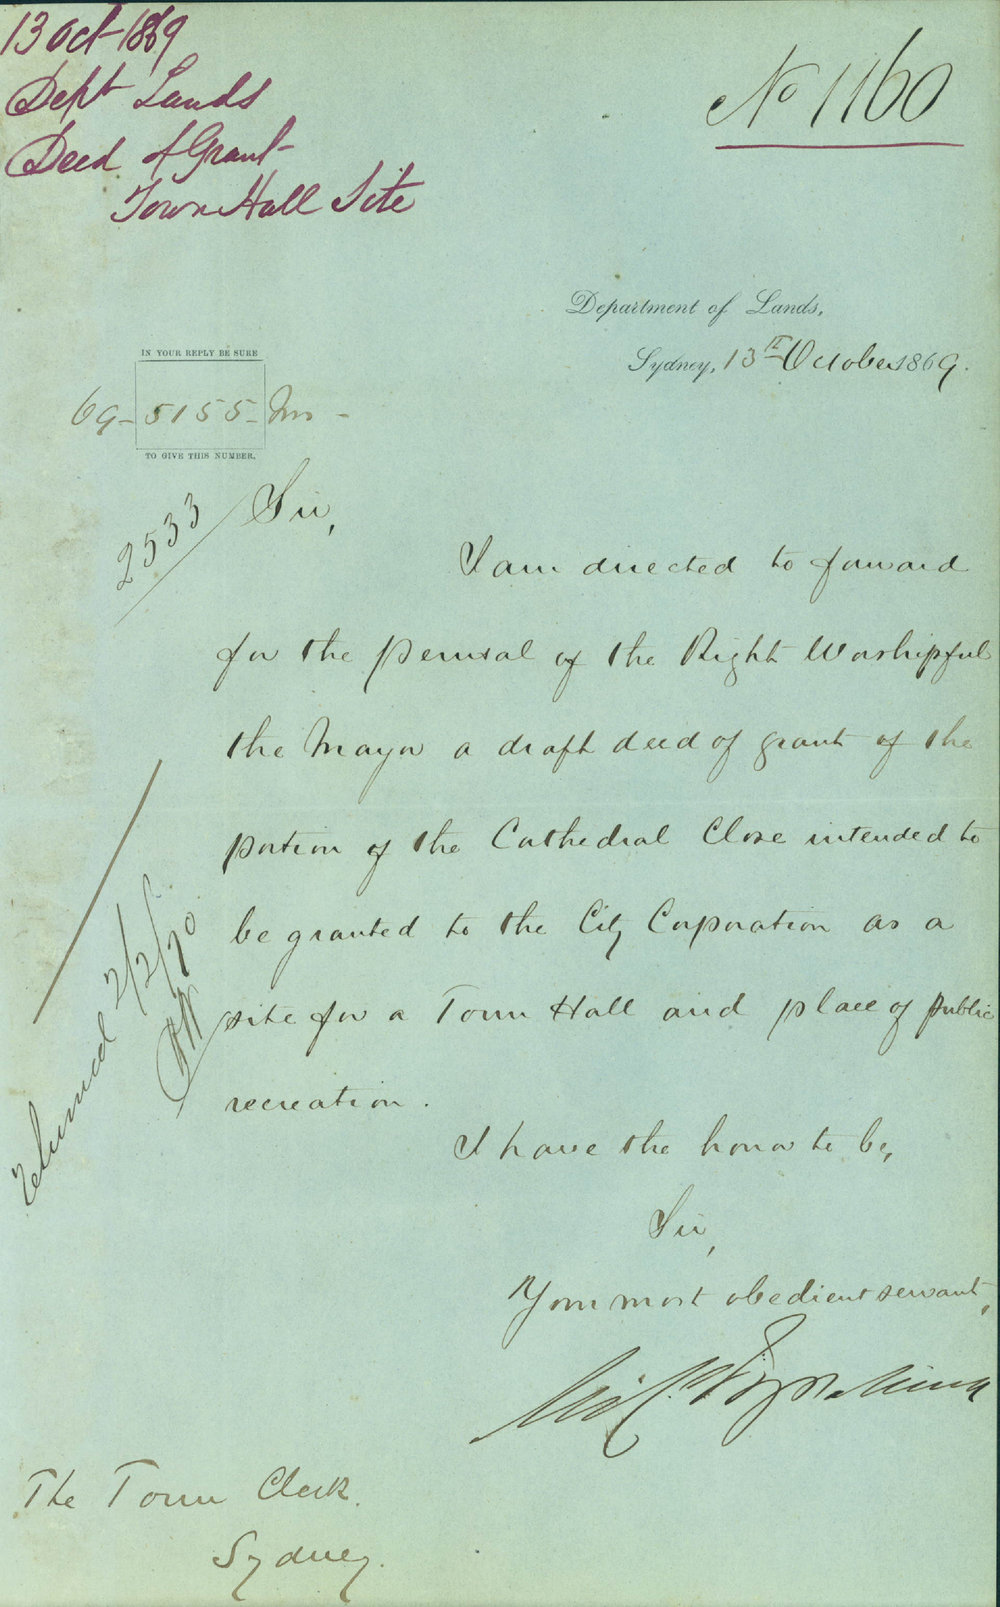 13 Oct 1869
Dept Lands
Deed of Grant
Town Hall Site
No 1160
Department of Lands,
Sydney, 13th October 1869.
IN YOUR REPLY BE SURE
69-5155-
TO GIVE THIS NUMBER.
2533
Sir,
I am directed to forward
for the perusal of the Right Worshipful
the Mayor a draft deed of grant of the
portion of the Cathedral Close intended to
be granted to the City Corporation as a
site for a Town Hall and place of public
recreation.
Returned 2/2/70
I have the honor to be,
Sir,
Your most obedient servant,
The Town Clerk.
Sydney.